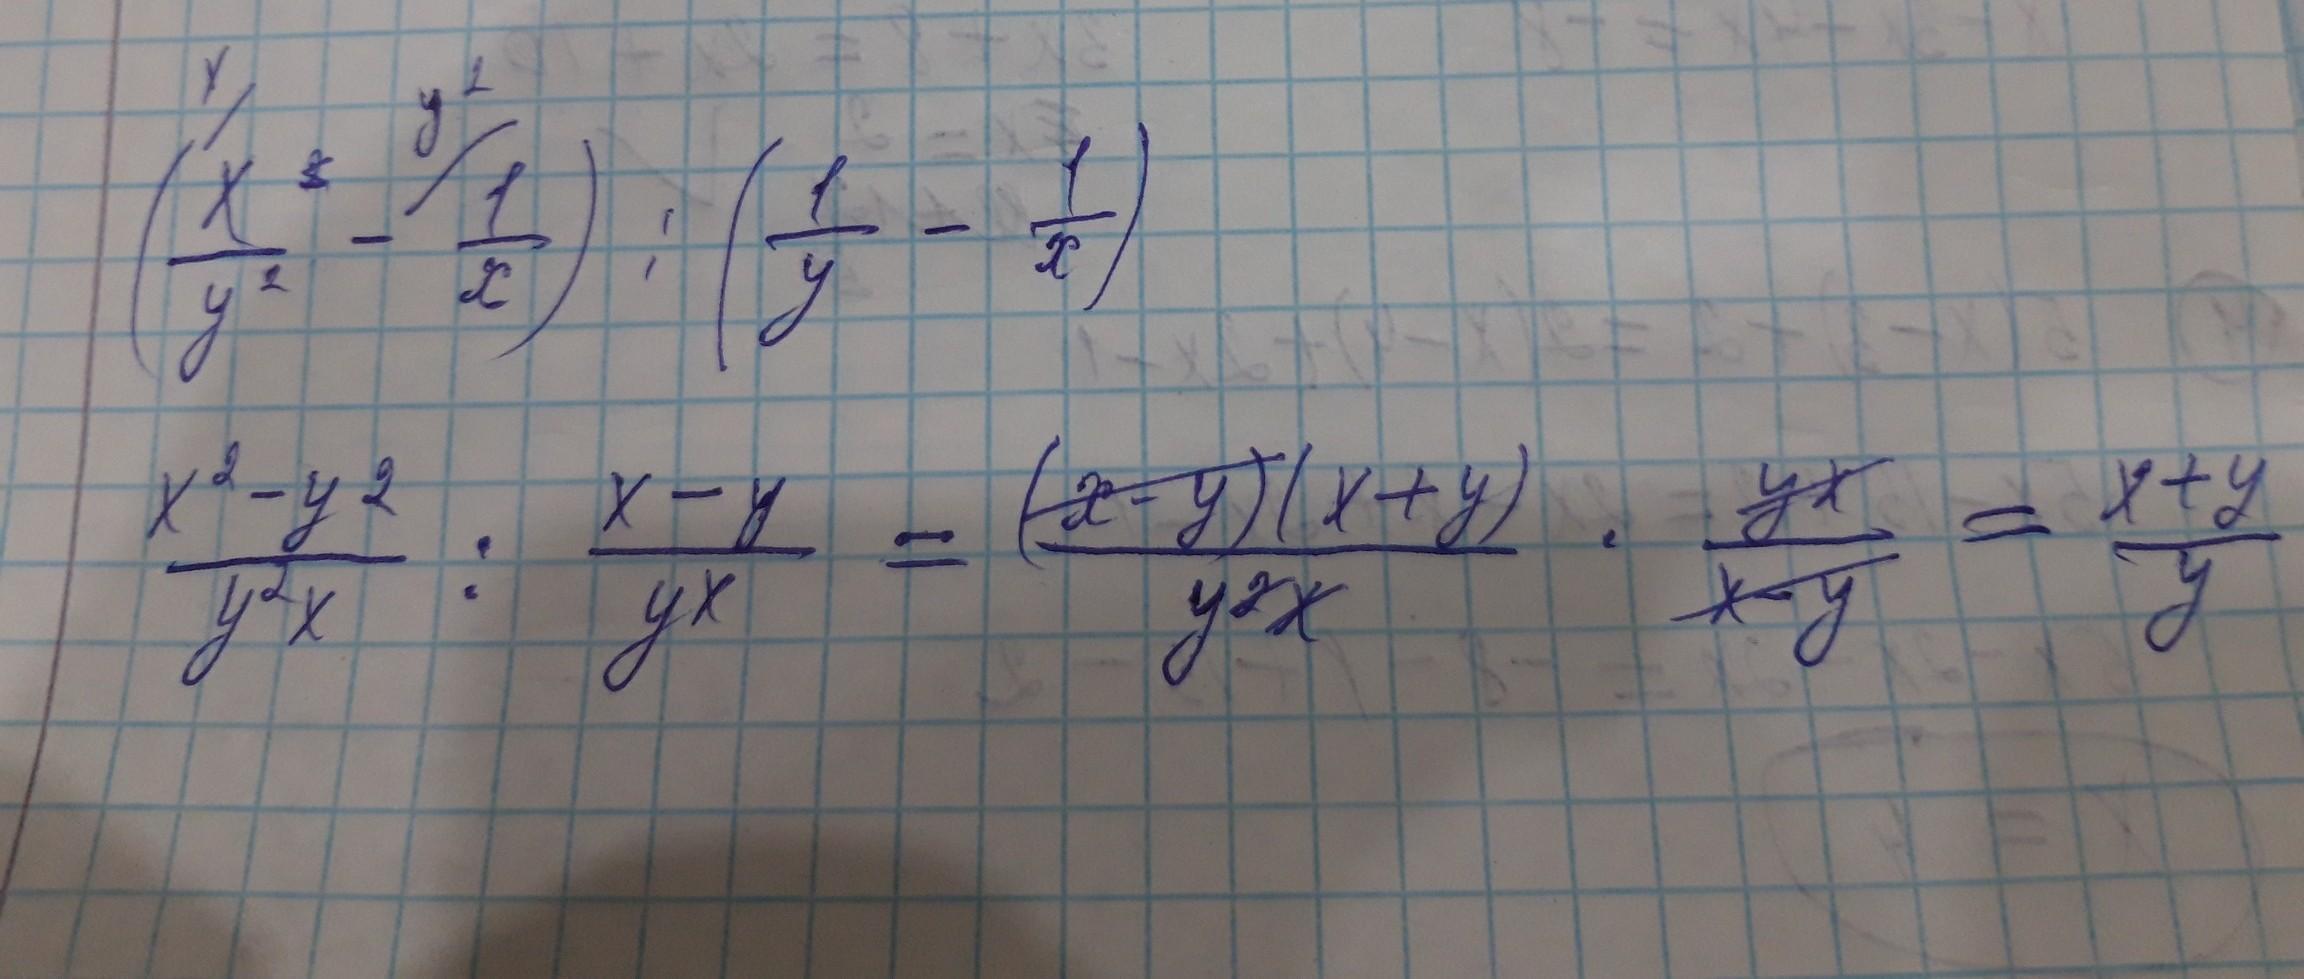 x/ y²/
(x/y² - 1/x) : (1/y - 1/x)
x²-y2/y²x : x-y/yx = (x-y)(x+y)/y²x · yx/x-y = x+y/y